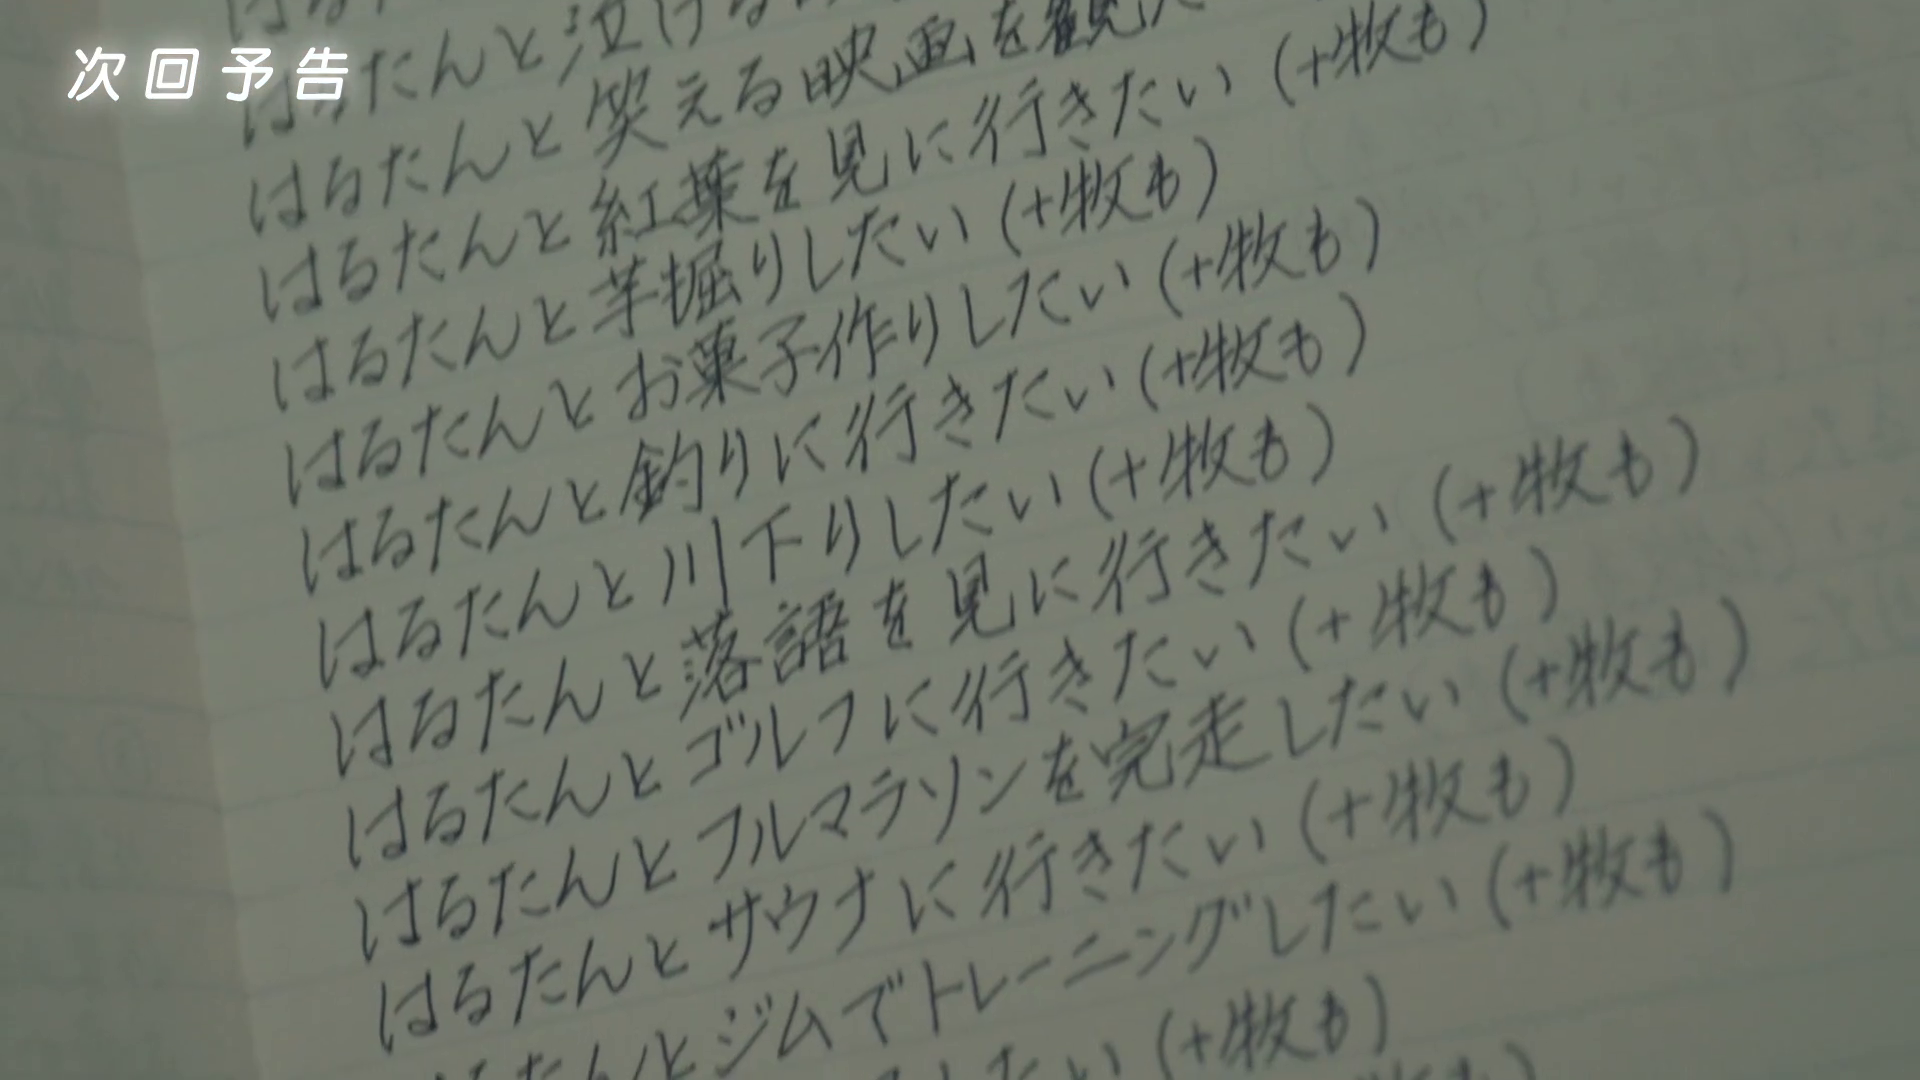 次回予告
はるたんと泣ける
はるたんと笑える映画を観た
はるたんと紅葉を見に行きたい(+牧も)
はるたんと芋掘りしたい(+牧も)
はるたんとお菓子作りしたい(+牧も)
はるたんと釣りに行きたい(+牧も)
はるたんと川下りしたい(+牧も)
はるたんと落語を見に行きたい(+牧も)
はるたんとゴルフに行きたい(+牧も)
はるたんとフルマラソンを完走したい(+牧も)
はるたんとサウナに行きたい(+牧も)
はるたんとジムでトレーニングしたい(+牧も)
したい(+牧も)